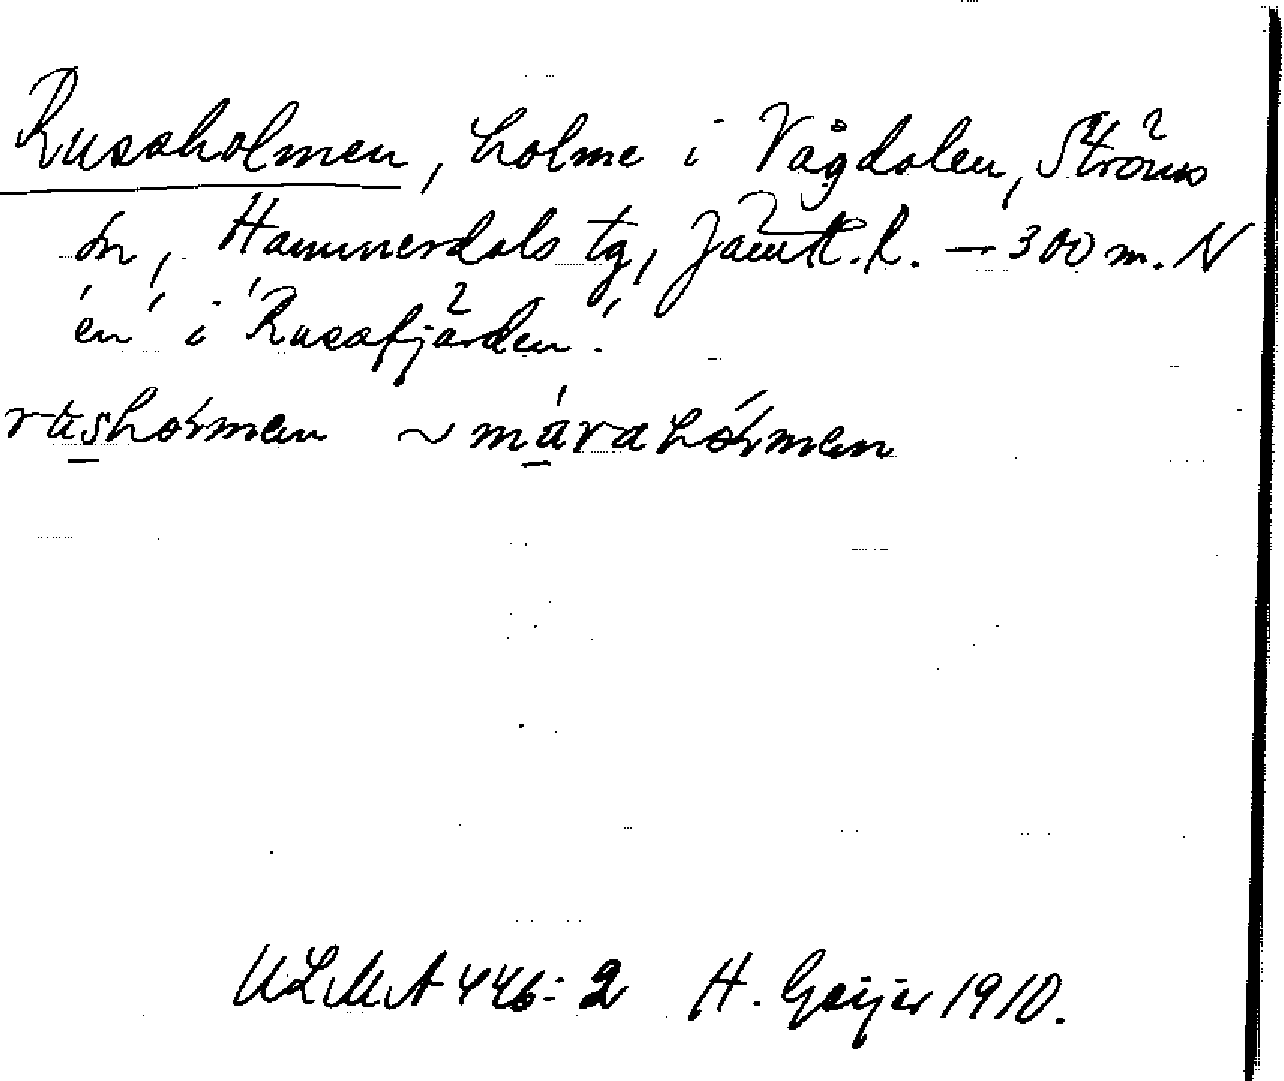 Rusaholmen, holme i Vågdalen, Ströms
sn, Hammerdals tg, Jämtl. l. – 300 m. N
'en' i 'Rusafjärden'.
rusholmen ~ márahólmen
ULMA 446:2 H. Geijer 1910.